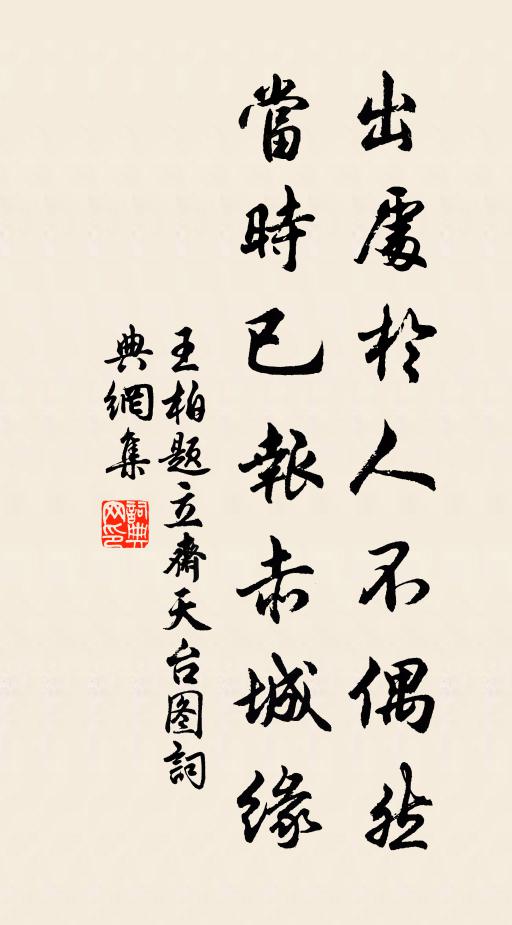 出處於人不偶然
當時已報赤城緣
王柏题立齋天台图詞
典網集
詞典网印